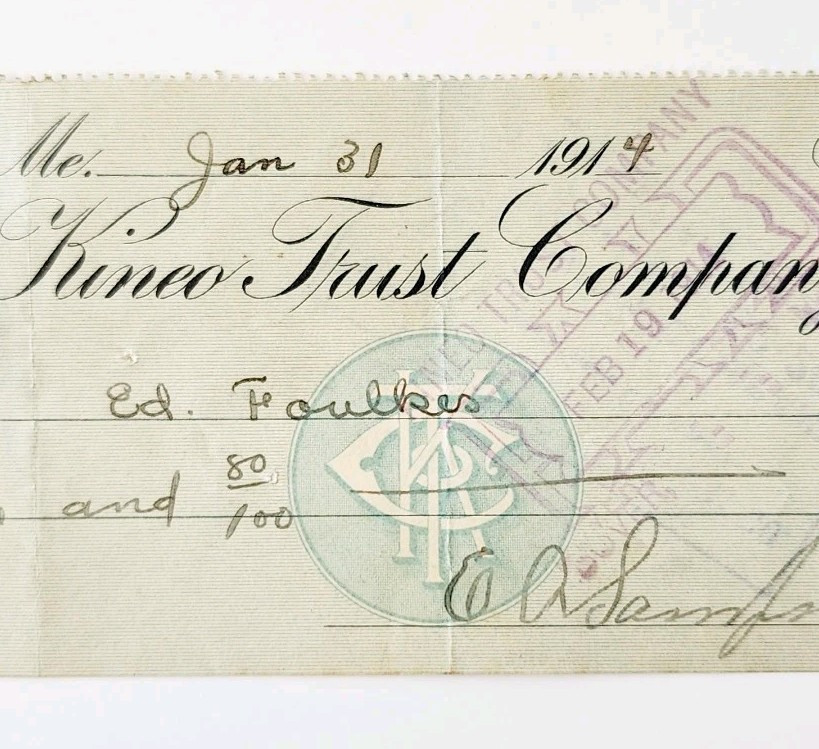 Me. Jan 31 1914
Kineo Trust Company
Ed. Foulkes
and 80/100
E A
TRUST COMPANY
PAID
FEB 19
DOVER
KTC